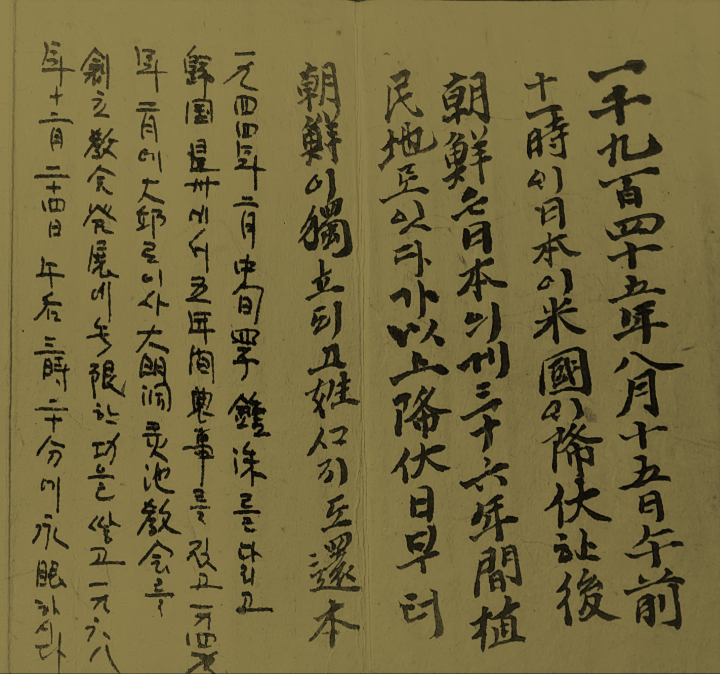 一千九百四十五年八月十五日午前
十一時에日本이米國에降伏한後
朝鮮은日本의게三十六年間植
民地로잇다가以上降伏日부터
朝鮮이獨立되고姓까지도還本
一九四四年二月中旬四子 鐘洙를다리고
歸国星州에서五年間農事를짓고一九四九
年二月에大邱로이사大明洞灵池敎会를
創立敎会発展에无限한덕을쌓고一九六八
年十二月二十四日午后三時二十分에永眠하시다